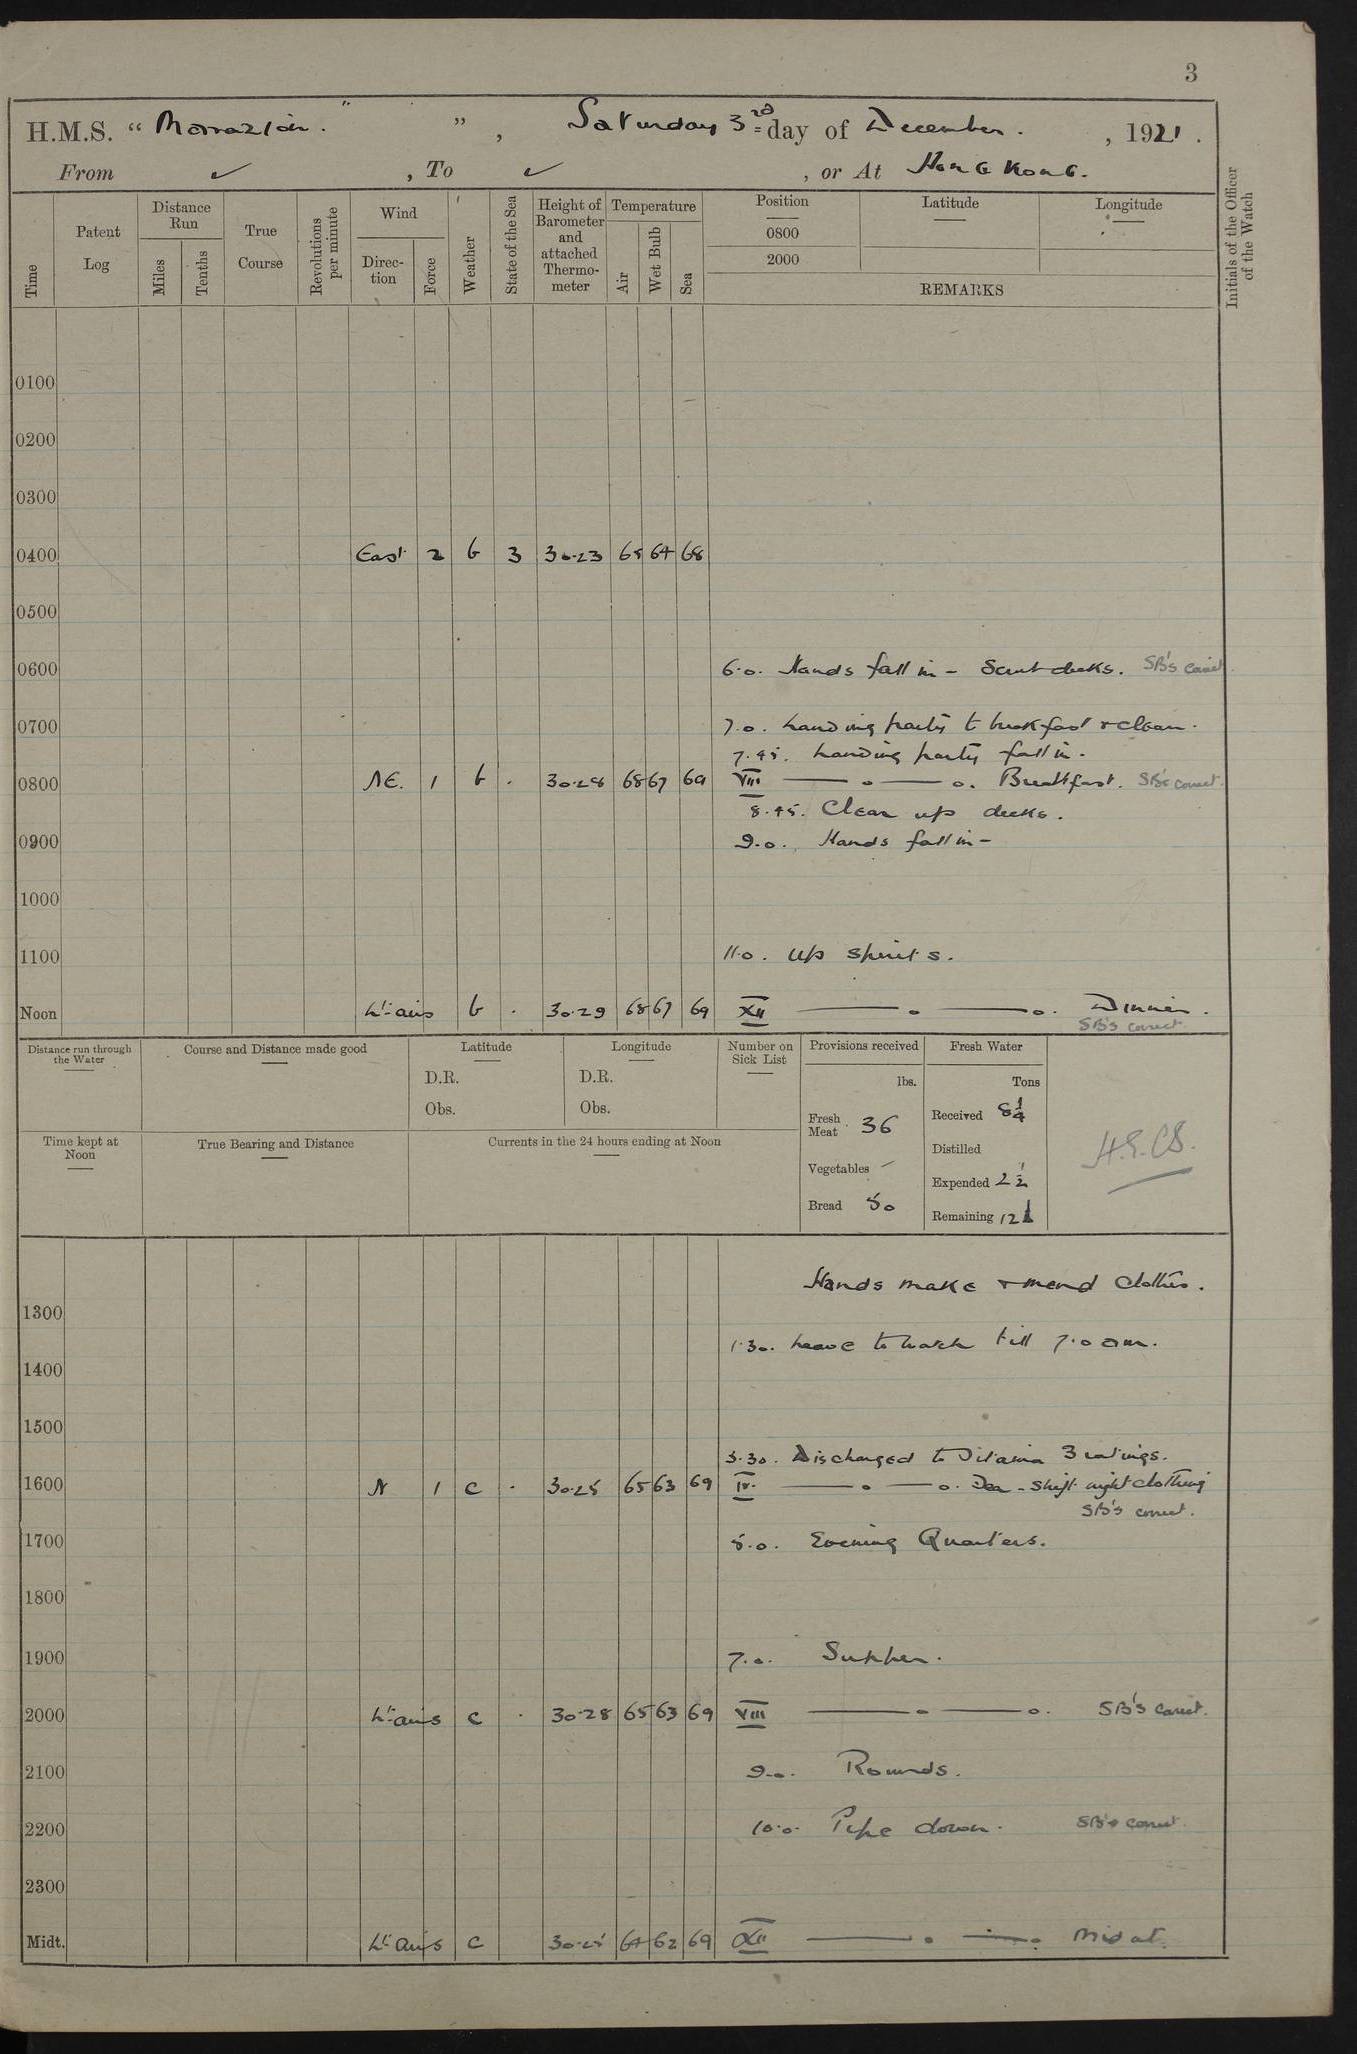 3
H.M.S. " Marazion. " ", Saturday 3rd day of December. , 1921.
From ✓ , To ✓ , or At Hong Kong.
Time
Patent Log
Distance Run
Miles
Tenths
True Course
Revolutions per minute
Wind
Direc-tion
Force
Weather
State of the Sea
Height of Barometer and attached Thermo-meter
Temperature
Air
Wet Bulb
Sea
Position
0800
2000
Latitude
Longitude
REMARKS
Initials of the Officer of the Watch
0100
0200
0300
0400 East 2 b 3 30.23 65 64 68
0500
0600 6.0. Hands fall in - Scrub decks. SB's correct
0700 7.0. Landing party to breakfast & clean.
7.45. Landing party fall in.
0800 NE. 1 b . 30.28 68 67 69 VIII —— o —— o. Breakfast. SB's correct.
8.45. Clear up decks.
0900 9.0. Hands fall in -
1000
1100 11.0. Up spirits.
Noon Lt airs b . 30.29 68 67 69 XII —— o —— o. Dinner.
SB's correct
Distance run through the Water
Course and Distance made good
Latitude
D.R.
Obs.
Longitude
D.R.
Obs.
Number on Sick List
Provisions received
lbs.
Fresh Meat 36
Vegetables -
Bread 50
Fresh Water
Tons
Received 8 1/4
Distilled
Expended 2 1/2
Remaining 12
Time kept at Noon
True Bearing and Distance
Currents in the 24 hours ending at Noon
Hands make & mend clothes.
1300
1.30. Leave to watch till 7.0 am.
1400
1500
3.30. Discharged to 3 ratings.
1600 N 1 c . 30.25 65 63 69 IV. —— o —— o. Tea - Shift night clothing
SB's correct.
1700 5.0. Evening Quarters.
1800
1900 7.0. Supper.
2000 Lt airs c . 30.28 65 63 69 VIII —— o —— o. SB's correct.
2100 9.0. Rounds.
2200 10.0. Pipe down. SB's correct.
2300
Midt. Lt airs c 30.25 64 62 69 XII —— o —— o